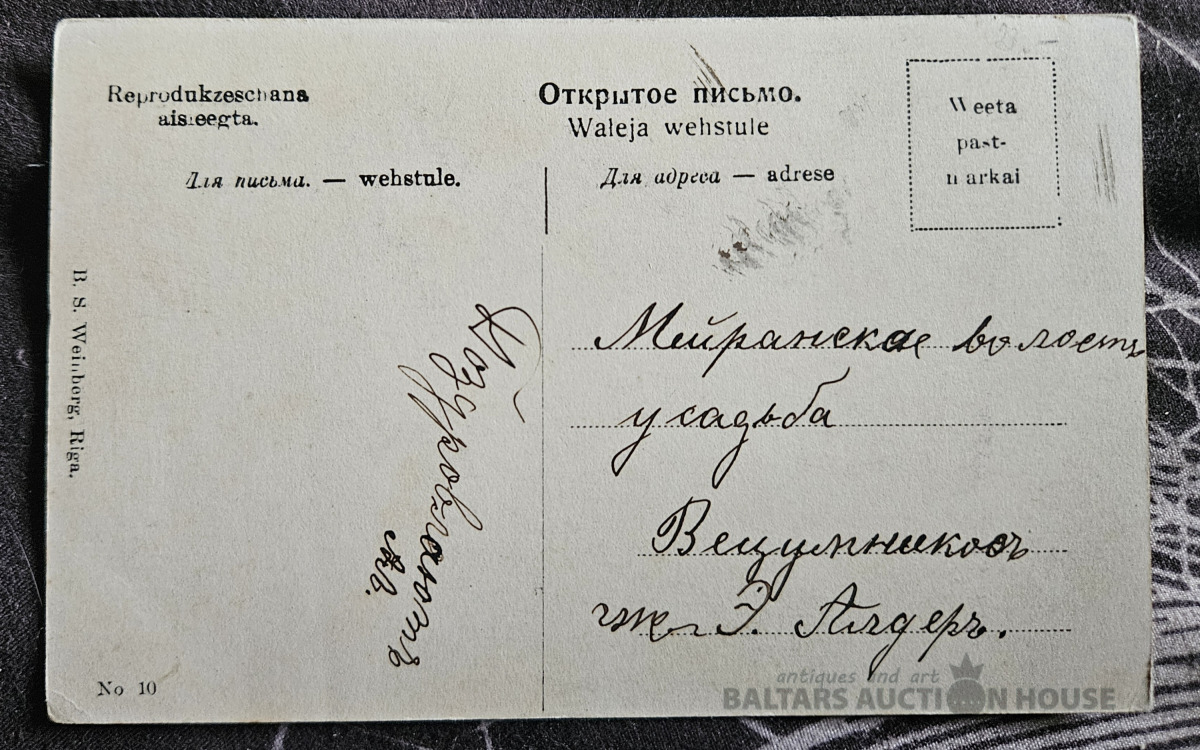 Reprodukzeschana
aisleegta.
Для письма. — wehstule.
Открытое письмо.
Waleja wehstule
Для адреса — adrese
Weeta
past-
markai
B. S. Weinberg, Riga.
Мейранское волость
усадьба
г-жѣ Э. Алдеръ.
Поздровляютъ
No 10
antiques and art
BALTARS AUCTION HOUSE